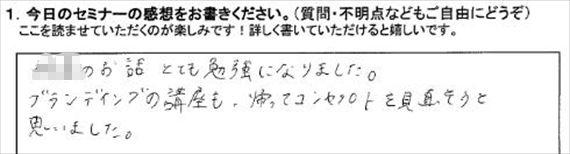 1. 今日のセミナーの感想をお書きください。(質問・不明点などもご自由にどうぞ)
ここを読ませていただくのが楽しみです!詳しく書いていただけると嬉しいです。
のお話 とても勉強になりました。
ブランディングの講座も、帰ってコンセプトを見直そうと
思いました。